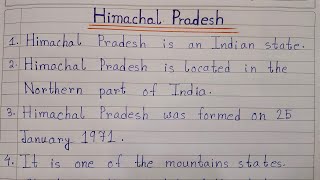 Himachal Pradesh
1. Himachal Pradesh is an Indian state.
2. Himachal Pradesh is located in the
Northern part of India.
3. Himachal Pradesh was formed on 25
January 1971.
4. It is one of the mountains states.